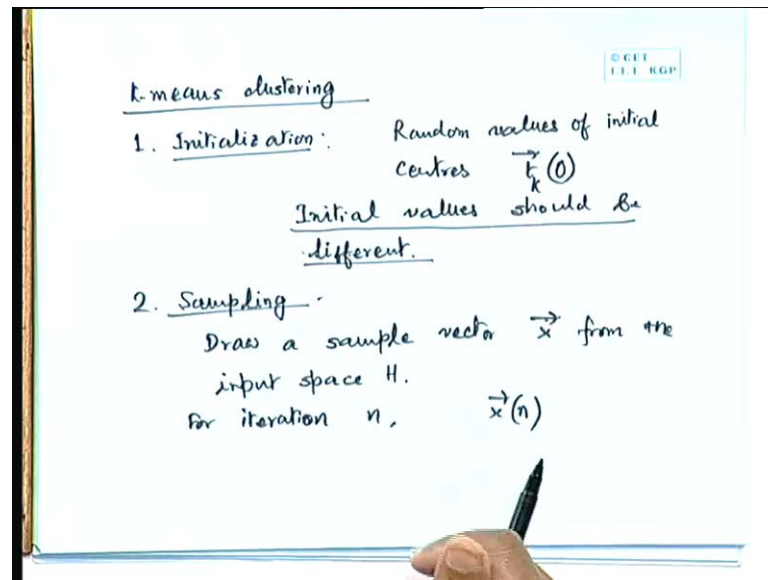 © CET
I.I.T. KGP
k-means clustering
1. Initialization: Random values of initial
centres t⃗k(0)
Initial values should be
different.
2. Sampling.
Draw a sample vector x⃗ from the
input space H.
For iteration n, x⃗(n)